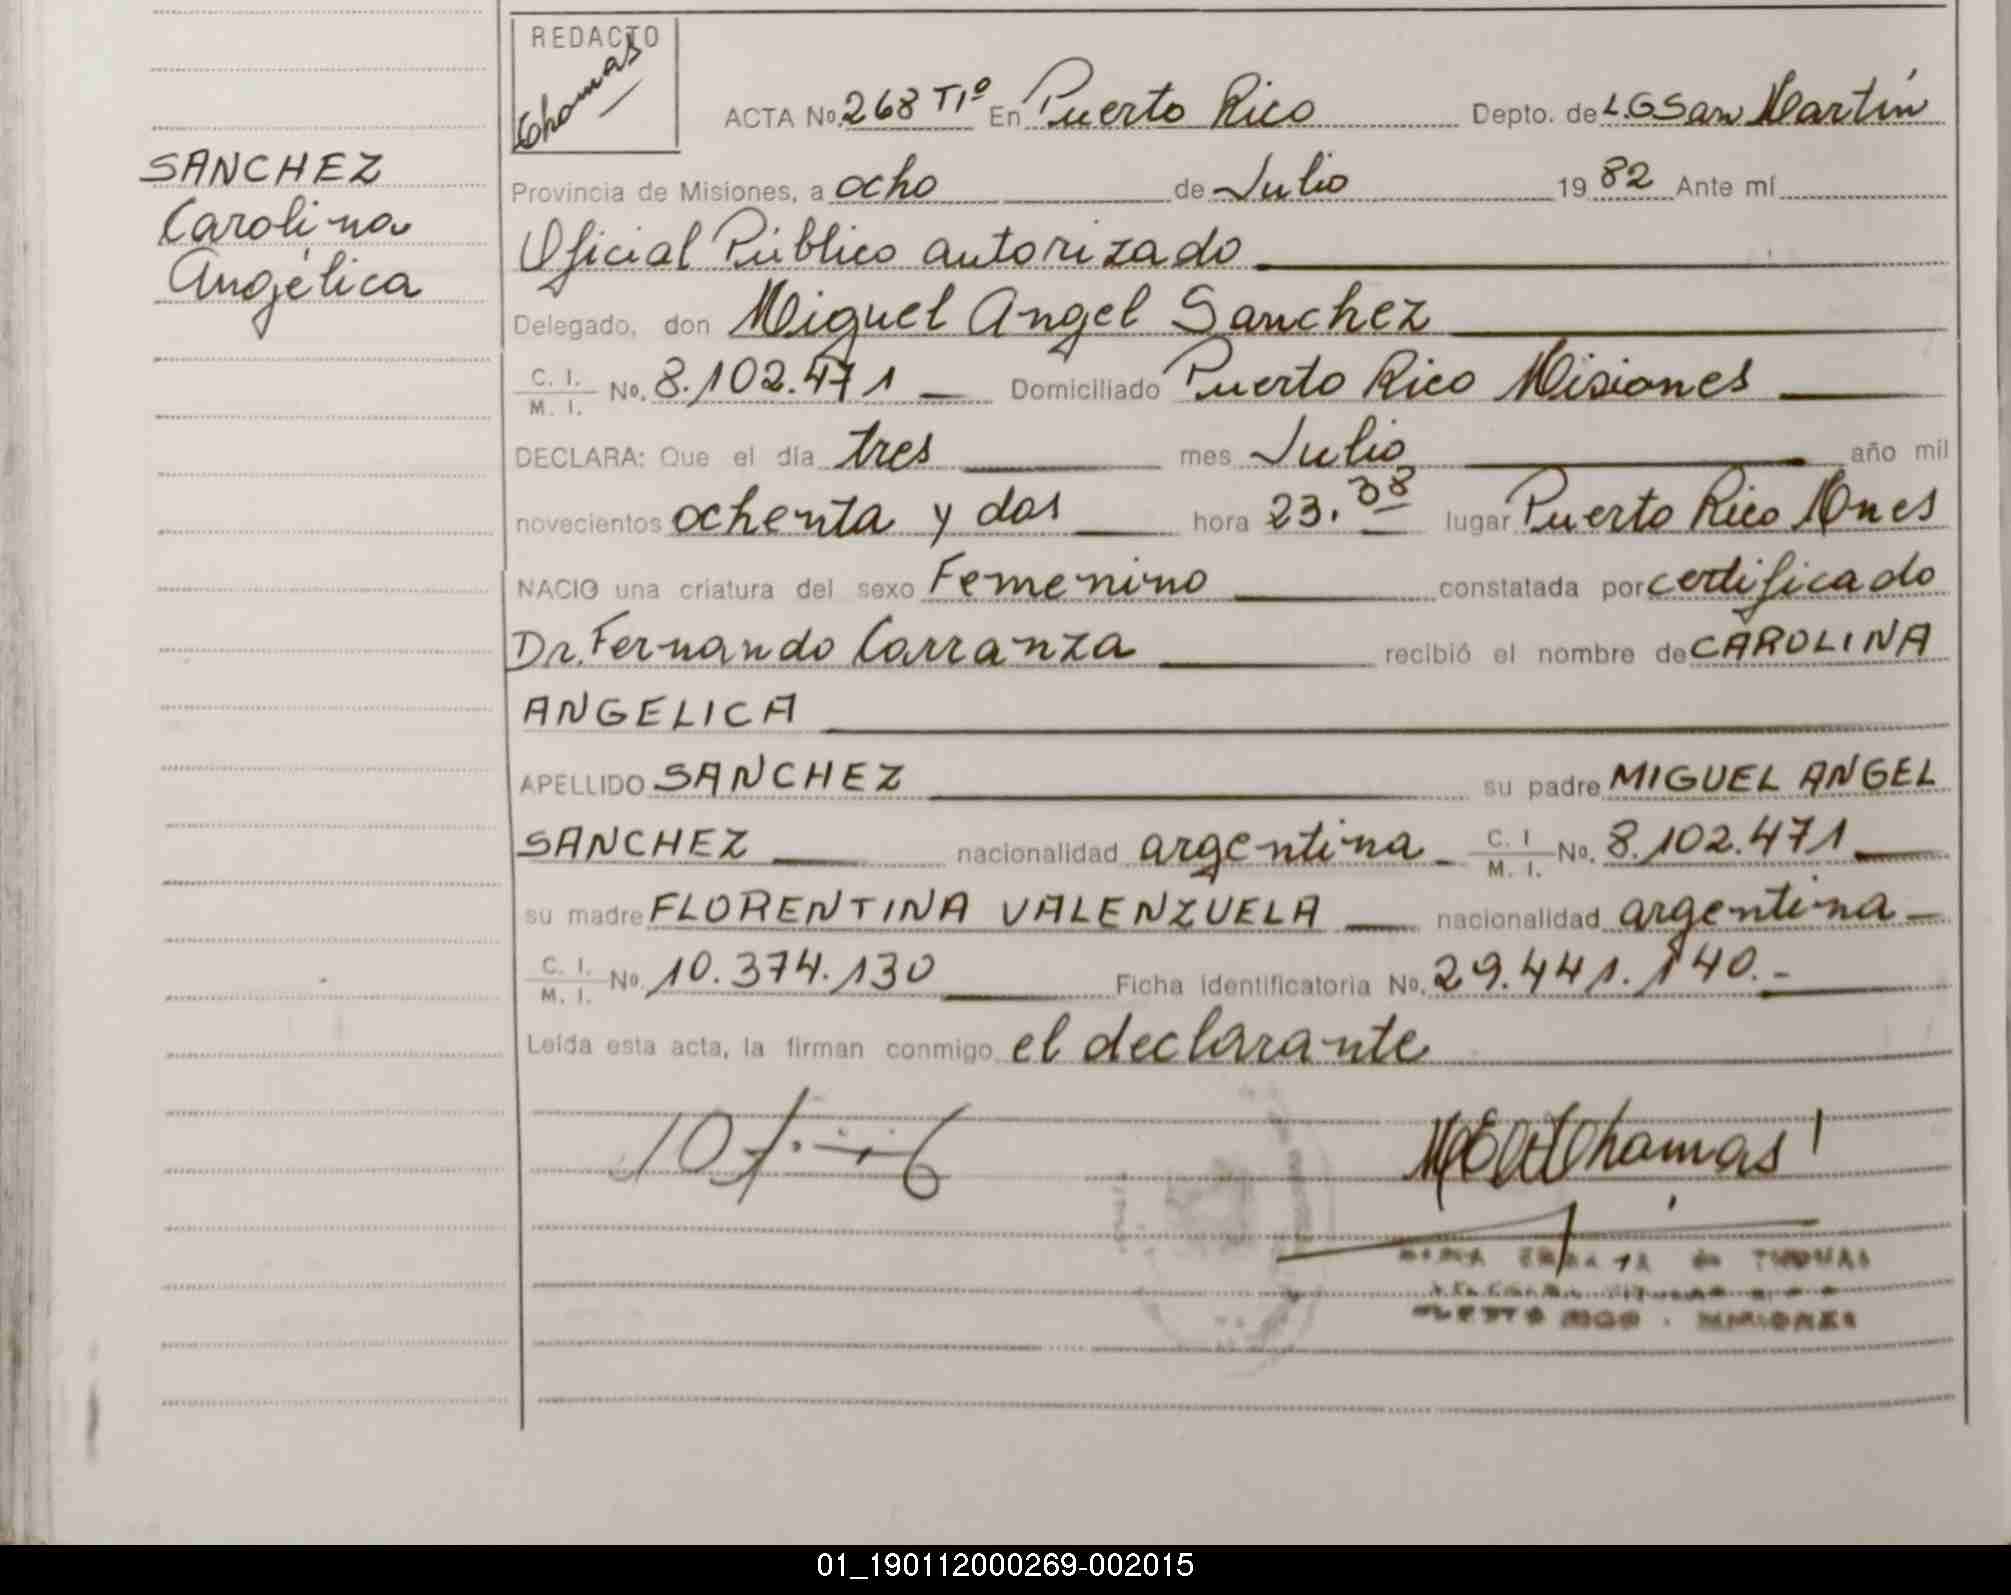 REDACTO
Thomas
SANCHEZ
Carolina
Angélica
ACTA No. 268 Tº1 En Puerto Rico Depto. de L.G San Martín
Provincia de Misiones, a ocho de Julio 19 82 Ante mí
Oficial Público autorizado
Delegado, don Miguel Angel Sanchez
C. I. / M. I. No. 8.102.471 Domiciliado Puerto Rico Misiones
DECLARA: Que el día tres mes Julio año mil
novecientos ochenta y dos hora 23.38 lugar Puerto Rico Mnes
NACIO una criatura del sexo Femenino constatada por certificado
Dr. Fernando Carranza recibió el nombre de CAROLINA
ANGELICA
APELLIDO SANCHEZ su padre MIGUEL ANGEL
SANCHEZ nacionalidad argentina C. I / M. I. No. 8.102.471
su madre FLORENTINA VALENZUELA nacionalidad argentina
C. I. / M. I. No. 10.374.130 Ficha identificatoria No. 29.441.140.-
Leída esta acta, la firman conmigo el declarante
Thomas
THOMAS
PUERTO RICO - MISIONES
01_190112000269-002015